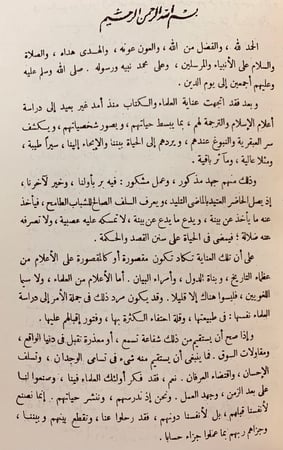 بسم الله الرحمن الرحيم
الحمد لله ، والفضل من الله ، والعون عونه ، والهدى هداه ، والصلاة
والسلام على الأنبياء والمرسلين ، وعلى محمد نبيه ورسوله . صلى الله وسلم عليه
وعليهم أجمعين إلى يوم الدين .
وبعد فقد اتجهت عناية العلماء والكتاب منذ أمد غير بعيد إلى دراسة
أعلام الإسلام والترجمة لهم ، بما يبسط حياتهم ، ويصور شخصياتهم ، ويكشف
سر العبقرية والنبوغ عندهم ، ويردهم إلى الحياة بيننا والإيحاء إلينا ، سيرًا طيبة ،
ومثلا عالية ، ومآثر باقية .
وذلك منهم جهد مذكور ، وعمل مشكور : فيه بر بأولنا ، وخير لآخرنا ،
إذ يصل الحاضر العتيد بالماضى التليد ، ويعرف السلف الصالح للشباب الطامح ، فيأخذ
عنه ما يأخذ عن بينة ، ويدع ما يدع عن بينة ، لا تمسكه عليه عصبية ، ولا تصرفه
عنه ضلالة ؛ فيمضى فى الحياة على سنن القصد والحكمة .
على أن تلك العناية تكاد تكون مقصورة أو كالمقصورة على الأعلام من
عظماء التاريخ ، وبناة الدول ، وأمراء البيان . أما الأعلام من العلماء ، ولا سيما
اللغويين ، فليسوا هناك إلا قليلا . وقد يكون مرد ذلك فى جملة الأمر إلى دراسة
العلماء نفسها : فى طبيعتها ، وقلة احتفاء الكثرة بها ، وفتور إقبالهم عليها .
وإذا صح أن يستقيم من ذلك شفاعة تسمع ، أو معذرة تقبل فى دنيا الواقع ،
ومقاولات السوق . فما ينبغى أن يستقيم منه شىء فى تسامى الوجدان ، وتسلف
الإحسان ، واقتضاء العرفان . نعم ، فقد فكر أولئك العلماء فينا ، وصنعوا لنا
على بعد الزمن ، وجهد العمل . ونحن إذ ندرسهم ، وننشر حياتهم . إنما نصنع
لأنفسنا قبلهم ، بل لأنفسنا دونهم ، فقد رحلوا عنا ، وتقطع بينهم وبيننا ،
وجزاهم ربهم بما عملوا جزاء حسابا .